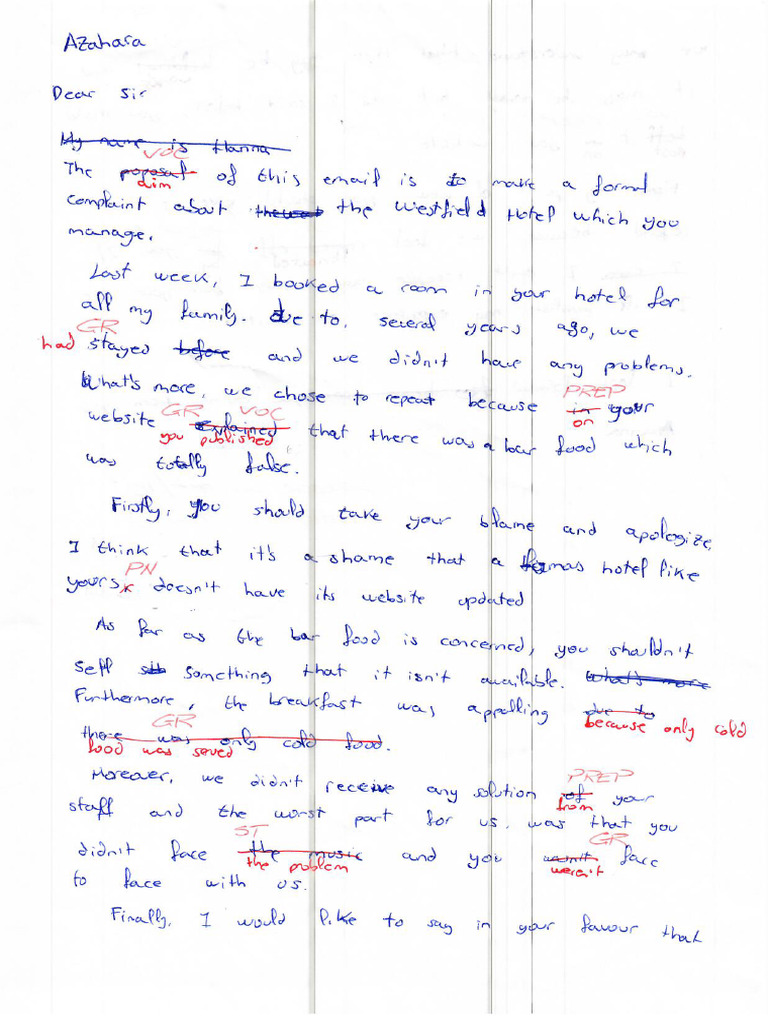 Azahara
Dear Sir
My name is Hanna
VOC
The poposal of this email is to make a formal
aim
complaint about the west the Westfield Hotel which you
manage.
Last week, I booked a room in your hotel for
all my family. due to, several years ago, we
GR
had stayed before and we didn't have any problems.
What's more, we chose to repeat because in your
PREP
on
website explained that there was a bar food which
GR VOC
you published
was totally false.
Firstly, you should take your blame and apologize,
I think that it's a shame that a famas hotel like
PN
yours, x doesn't have its website updated
As far as the bar food is concerned, you shouldn't
sell something that it isn't available. What's more
Furthermore, the breakfast was appalling due to
because only cold
GR
there was only cold food.
food was saved
Moreover, we didn't receive any solution of your
PREP
from
staff and the worst part for us. was that you
ST
didn't face the music and you wasn't face
GR
the problem
weren't
to face with us.
Finally, I would like to say in your favour that